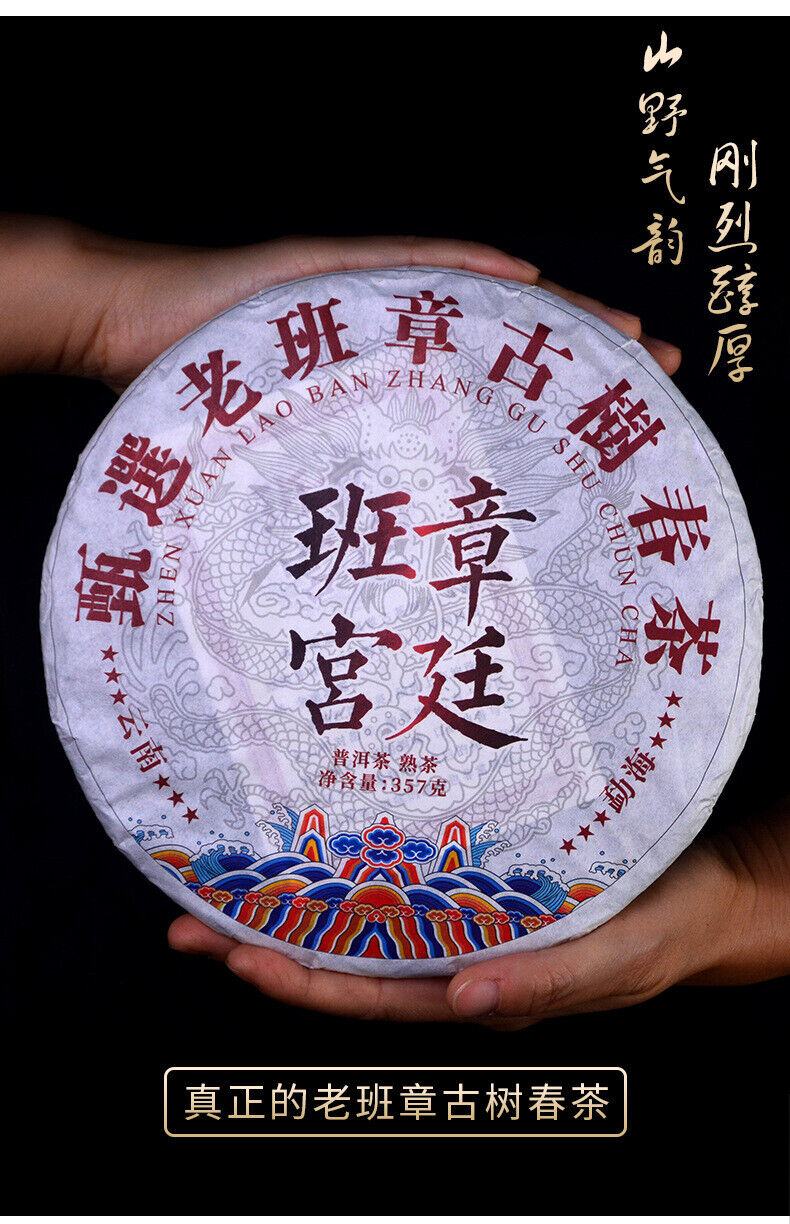 山野气韵
刚烈醇厚
甄選老班章古樹春茶
ZHEN XUAN LAO BAN ZHANG GU SHU CHUN CHA
班章
宮廷
普洱茶 熟茶
净含量:357克
★★★★云南★★★★
★★★★勐海★★★★
真正的老班章古树春茶